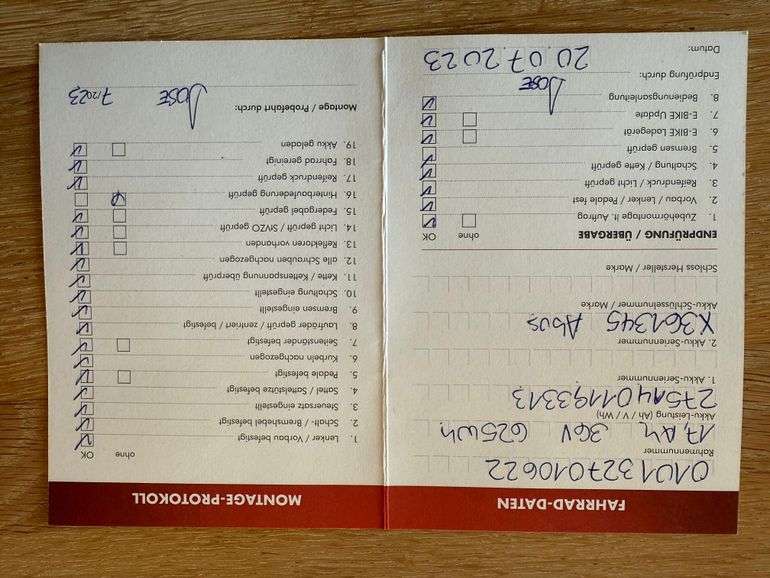 FAHRRAD-DATEN
0101327010622
Rahmennummer
36V 625Wh
Akku-Leistung (Ah / V / Wh)
1. Akku-Seriennummer
2. Akku-Seriennummer
X361345 Abus
Akku-Schlüsselnummer / Marke
Schloss Hersteller / Marke
ENDPRÜFUNG / ÜBERGABE OK ohne
1. Zubehörmontage lt. Auftrag
2. Vorbau / Lenker / Pedale fest
3. Reifendruck / Licht / geprüft
4. Schaltung / Kette geprüft
5. Bremsen geprüft
6. E-BIKE Ladegerät
7. E-BIKE Update
8. Bedienungsanleitung
Endprüfung durch: JOSE
Datum: 20.07.2023
MONTAGE-PROTOKOLL
OK ohne
1. Lenker / Vorbau befestigt
2. Schalt- / Bremshebel befestigt
3. Steuersatz eingestellt
4. Sattel / Sattelstütze befestigt
5. Pedale befestigt
6. Kurbeln nachgezogen
7. Seitenständer befestigt
8. Laufräder geprüft / zentriert / befestigt
9. Bremsen eingestellt
10. Schaltung eingestellt
11. Kette / Kettenspannung überprüft
12. alle Schrauben nachgezogen
13. Reflektoren vorhanden
14. Licht geprüft / StVZO geprüft
15. Federgabel geprüft
16. Hinterbaufederung geprüft
17. Reifendruck geprüft
18. Fahrrad gereinigt
19. Akku geladen
Montage / Probefahrt durch:
JOSE 7/2023